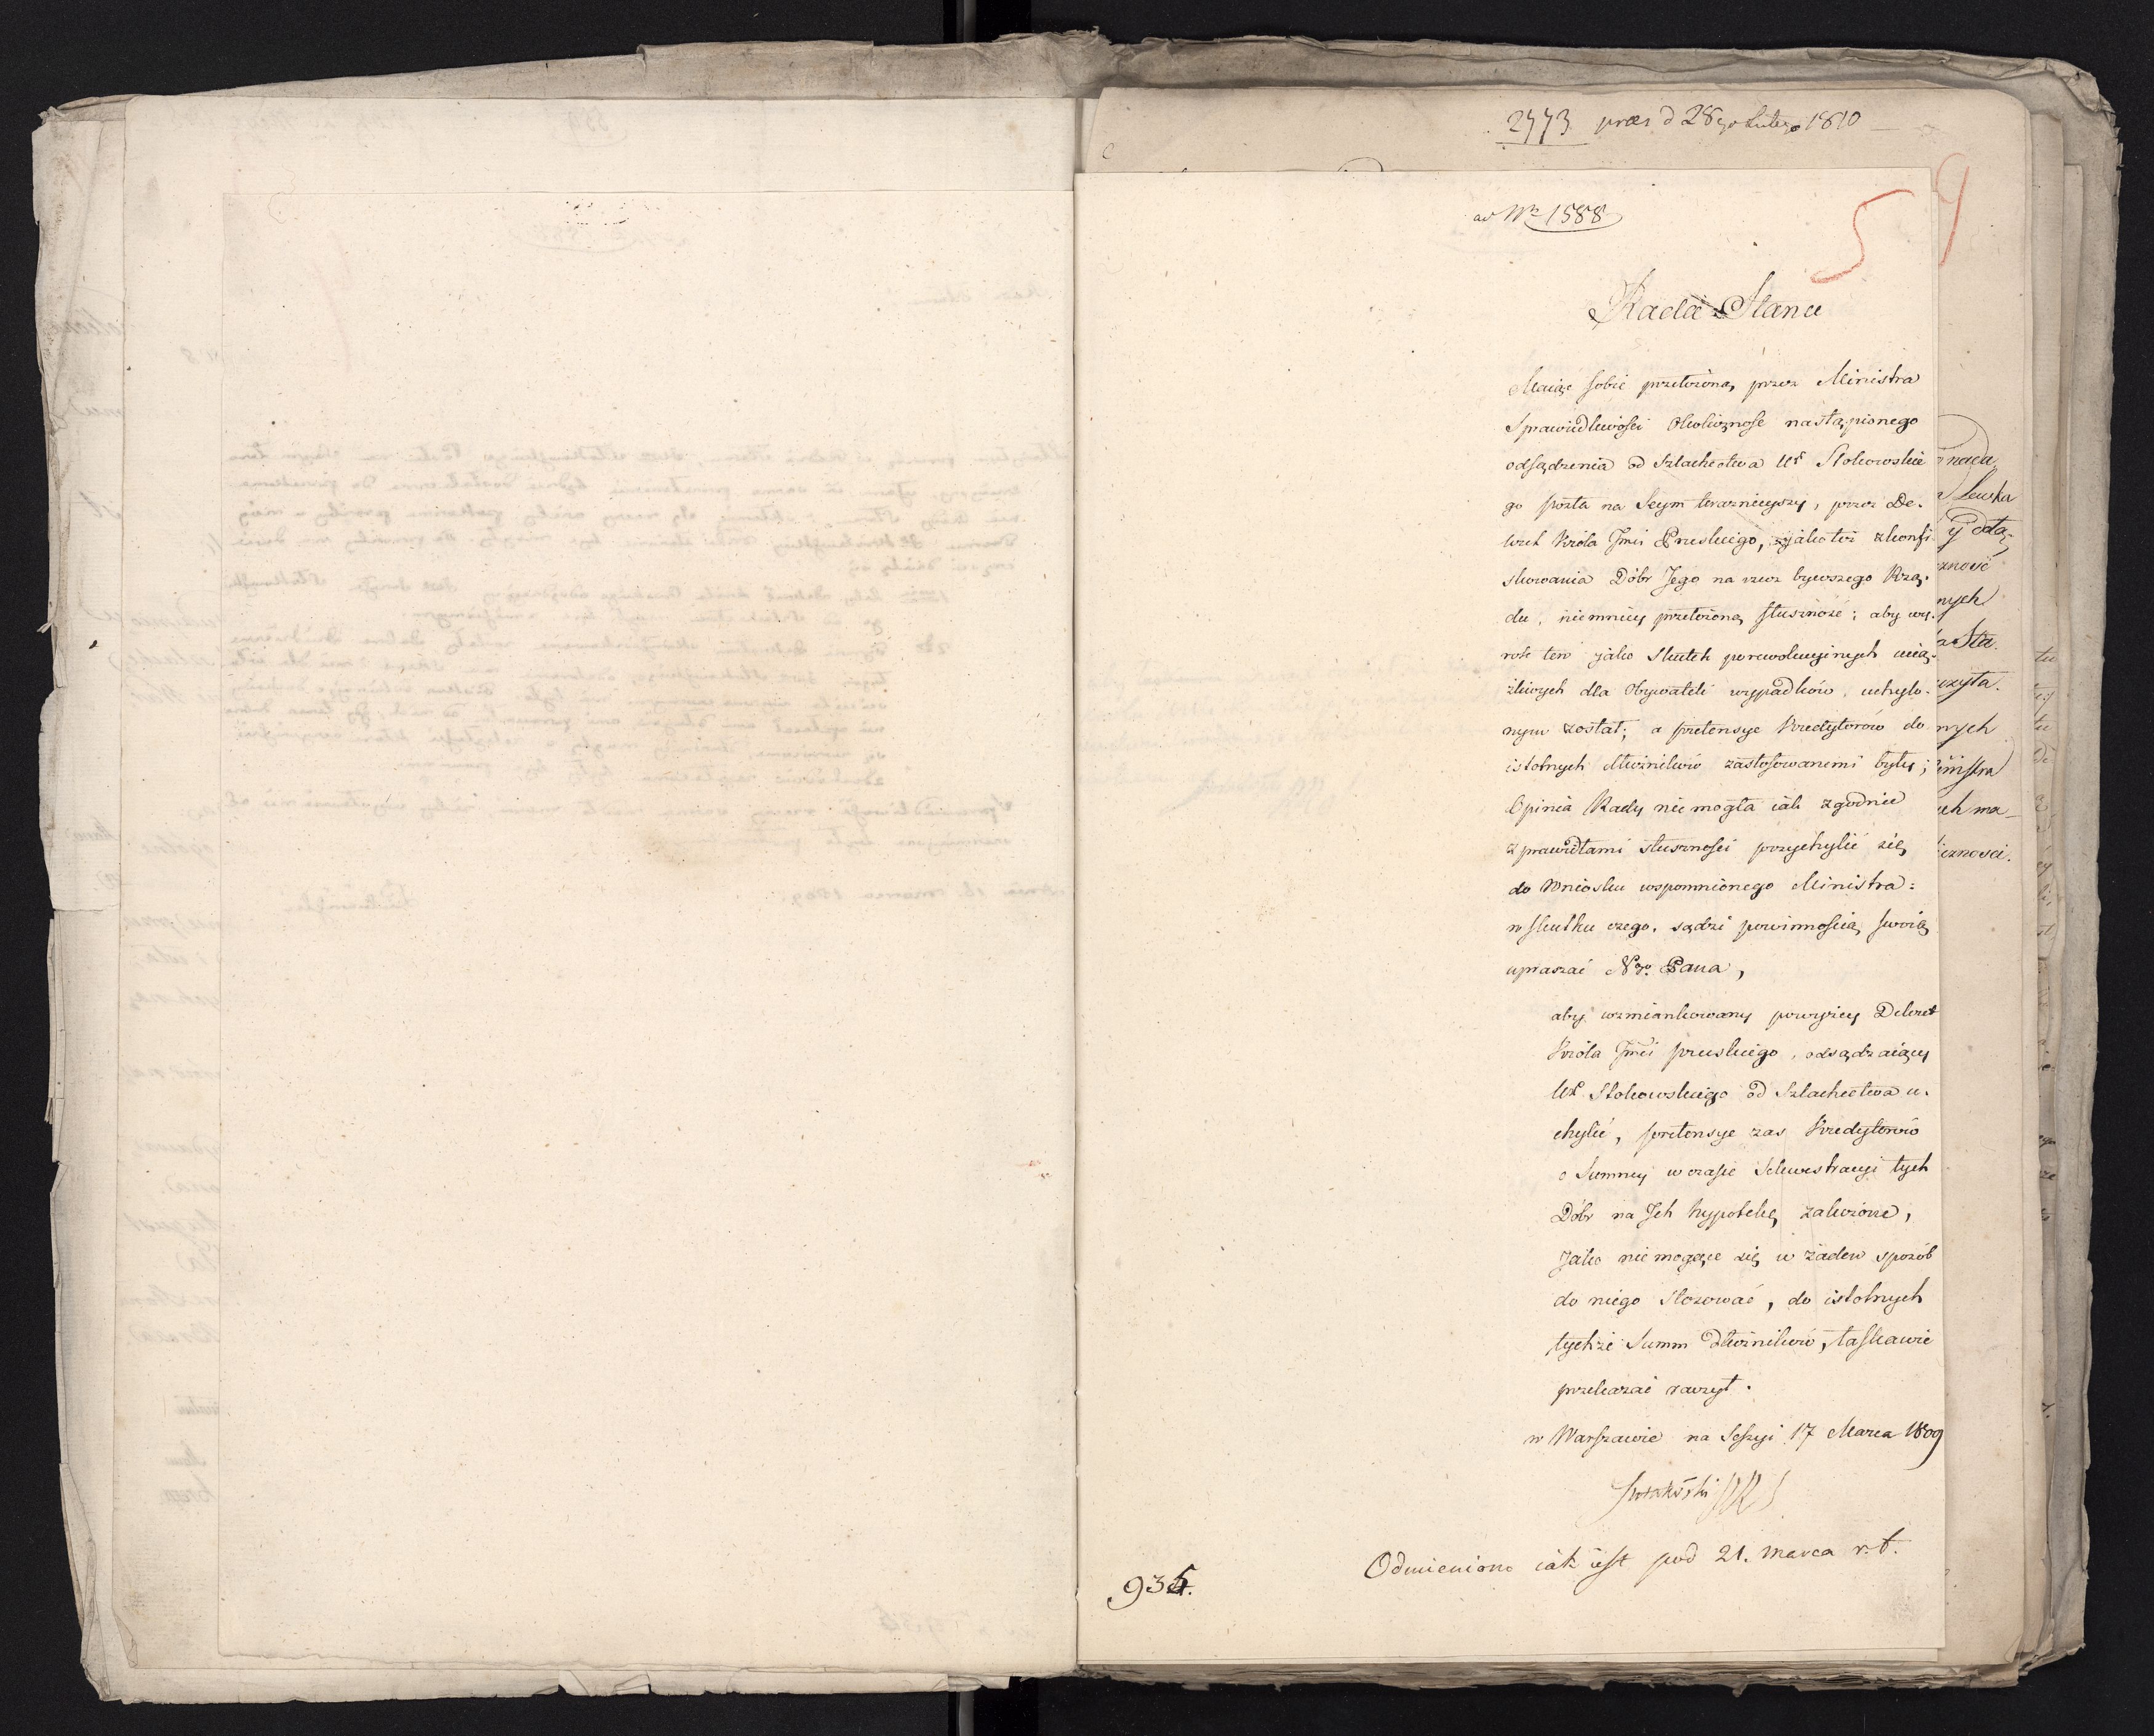 2773 præs d 28go Lutego 1810
ad Nr 1588
59
Rada Stanu
Maiąc sobie przełożoną przez Ministra
Sprawiedliwości Okoliczność nastąpionego
odsądzenia od Szlachectwa Ur Stokowskie
go posła na Seym teraznieyszy, przez De-
kret Króla Jmci Pruskiego, jako też zkonfi-
skowania Dóbr Jego na rzecz bywszego Rzą-
du, niemniey przełożoną słuszność; aby wy-
rok ten jako Skutek porewolucyinych ucią-
żliwych dla Obywateli wypadków, uchylo-
nym został; a pretensye Kredytorów do
istotnych dłużników zastosowanemi były;
Opinia Rady nie mogła iak zgodnie
z prawidłami słuszności przychylić się
do Wniosku wspomnionego Ministra:
w skutku czego, sądzi powinnością swoią
upraszać Nго Pana,
aby wzmiankowany powyżey Dekret
Króla Jmci pruskiego, odsądzaiący
Ur Stokowskiego od Szlachectwa u-
chylić, pretensye zas Kredytorów
o Summy w czasie Sekwestracyi tych
Dóbr na Jch hypotekę zaliczone,
Jako nie mogące się w żaden sposób
do niego stosować, do istotnych
tychże Summ dłużników, łaskawie
przekazać raczył.
w Warszawie na Sessyi 17 Marca 1809
Odmieniono iak iest pod 21. Marca r. t.
935.